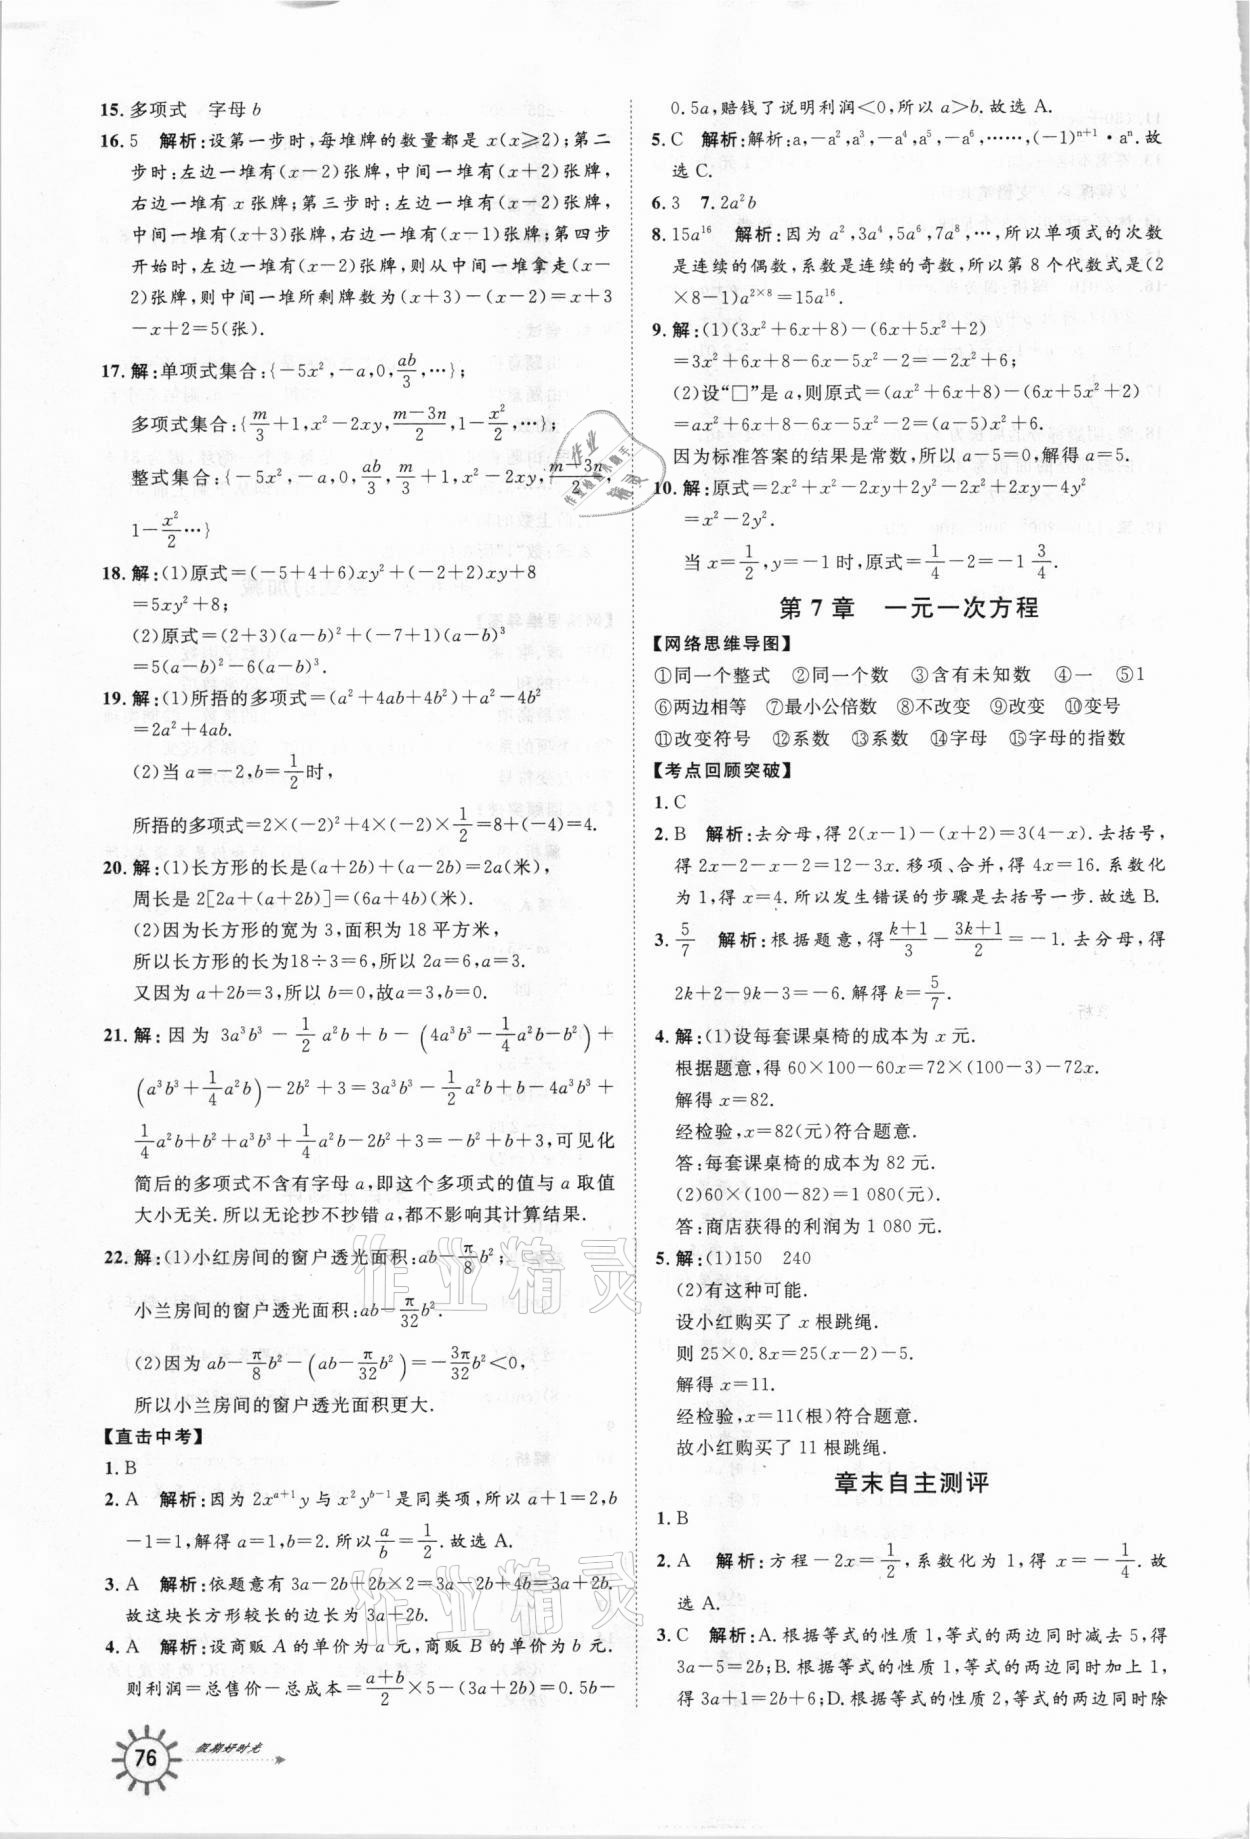 15. 多项式 字母 b
16. 5 解析:设第一步时,每堆牌的数量都是 x(x⩾2);第二
步时:左边一堆有(x−2)张牌,中间一堆有(x+2)张牌,
右边一堆有 x 张牌;第三步时:左边一堆有(x−2)张牌,
中间一堆有(x+3)张牌,右边一堆有(x−1)张牌;第四步
开始时,左边一堆有(x−2)张牌,则从中间一堆拿走(x−
2)张牌,则中间一堆所剩牌数为(x+3)−(x−2)=x+3
−x+2=5(张).
17. 解:单项式集合:{−5x²,−a,0,ab/3,…};
多项式集合:{m/3+1,x²−2xy,(m−3n)/2,1−x²/2,…};
整式集合:{−5x²,−a,0,ab/3,m/3+1,x²−2xy,(m−3n)/2,
1−x²/2…}
18. 解:(1)原式=(−5+4+6)xy²+(−2+2)xy+8
=5xy²+8;
(2)原式=(2+3)(a−b)²+(−7+1)(a−b)³
=5(a−b)²−6(a−b)³.
19. 解:(1)所捂的多项式=(a²+4ab+4b²)+a²−4b²
=2a²+4ab.
(2)当 a=−2,b=1/2时,
所捂的多项式=2×(−2)²+4×(−2)×1/2=8+(−4)=4.
20. 解:(1)长方形的长是(a+2b)+(a−2b)=2a(米),
周长是 2[2a+(a+2b)]=(6a+4b)(米).
(2)因为长方形的宽为 3,面积为 18 平方米,
所以长方形的长为18÷3=6,所以 2a=6,a=3.
又因为 a+2b=3,所以 b=0,故 a=3,b=0.
21. 解:因为 3a³b³−1/2 a²b+b−(4a³b³−1/4 a²b−b²)+
(a³b³+1/4 a²b)−2b²+3=3a³b³−1/2 a²b+b−4a³b³+
1/4 a²b+b²+a³b³+1/4 a²b−2b²+3=−b²+b+3,可见化
简后的多项式不含有字母 a,即这个多项式的值与 a 取值
大小无关.所以无论抄不抄错 a,都不影响其计算结果.
22. 解:(1)小红房间的窗户透光面积:ab−π/8 b²;
小兰房间的窗户透光面积:ab−π/32 b².
(2)因为 ab−π/8 b²−(ab−π/32 b²)=−3π/32 b²<0,
所以小兰房间的窗户透光面积更大.
【直击中考】
1. B
2. A 解析:因为 2xᵃ⁺¹y 与 x²yᵇ⁻¹是同类项,所以 a+1=2,b
−1=1,解得 a=1,b=2.所以a/b=1/2.故选 A.
3. A 解析:依题意有 3a−2b+2b×2=3a−2b+4b=3a+2b.
故这块长方形较长的边长为 3a+2b.
4. A 解析:设商贩 A 的单价为 a 元,商贩 B 的单价为 b 元.
则利润=总售价−总成本=(a+b)/2×5−(3a+2b)=0.5b−
76 假期好时光
0.5a,赔钱了说明利润<0,所以 a>b.故选 A.
5. C 解析:解析:a,−a²,a³,−a⁴,a⁵,−a⁶,……,(−1)ⁿ⁺¹·aⁿ.故
选 C.
6. 3 7. 2a²b
8. 15a¹⁶ 解析:因为 a²,3a⁴,5a⁶,7a⁸,…,所以单项式的次数
是连续的偶数,系数是连续的奇数,所以第 8 个代数式是(2
×8−1)a²ˣ⁸=15a¹⁶.
9. 解:(1)(3x²+6x+8)−(6x+5x²+2)
=3x²+6x+8−6x−5x²−2=−2x²+6;
(2)设“□”是 a,则原式=(ax²+6x+8)−(6x+5x²+2)
=ax²+6x+8−6x−5x²−2=(a−5)x²+6.
因为标准答案的结果是常数,所以 a−5=0,解得 a=5.
10. 解:原式=2x²+x²−2xy+2y²−2x²+2xy−4y²
=x²−2y².
当 x=1/2,y=−1 时,原式=1/4−2=−1 3/4.
第 7 章 一元一次方程
【网络思维导图】
①同一个整式 ②同一个数 ③含有未知数 ④一 ⑤1
⑥两边相等 ⑦最小公倍数 ⑧不改变 ⑨改变 ⑩变号
⑪改变符号 ⑫系数 ⑬系数 ⑭字母 ⑮字母的指数
【考点回顾突破】
1. C
2. B 解析:去分母,得 2(x−1)−(x+2)=3(4−x).去括号,
得 2x−2−x−2=12−3x.移项、合并,得 4x=16.系数化
为 1,得 x=4.所以发生错误的步骤是去括号一步.故选 B.
3. 5/7 解析:根据题意,得(k+1)/3−(3k+1)/2=−1.去分母,得
2k+2−9k−3=−6.解得 k=5/7.
4. 解:(1)设每套课桌椅的成本为 x 元.
根据题意,得 60×100−60x=72×(100−3)−72x.
解得 x=82.
经检验,x=82(元)符合题意.
答:每套课桌椅的成本为 82 元.
(2)60×(100−82)=1 080(元).
答:商店获得的利润为 1 080 元.
5. 解:(1)150 240
(2)有这种可能.
设小红购买了 x 根跳绳.
则 25×0.8x=25(x−2)−5.
解得 x=11.
经检验,x=11(根)符合题意.
故小红购买了 11 根跳绳.
章末自主测评
1. B
2. A 解析:方程−2x=1/2,系数化为 1,得 x=−1/4.故
选 A.
3. C 解析:A.根据等式的性质 1,等式的两边同时减去 5,得
3a−5=2b;B.根据等式的性质 1,等式的两边同时加上 1,
得 3a+1=2b+6;D.根据等式的性质 2,等式的两边同时除
作业精灵
作业精灵